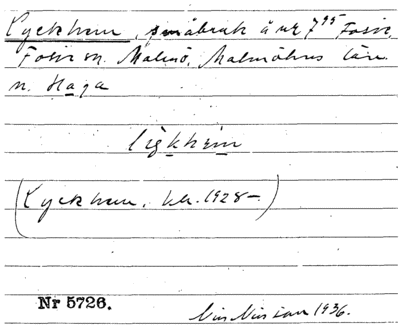 Lyckhem, småbruk å nr 7⁹⁵ Fosie,
Fosie sn. Malmö, Malmöhus län.
n. Haga
(Lyckhem, bl. 1928-)
Nr 5726. Nils Nilsson 1936.